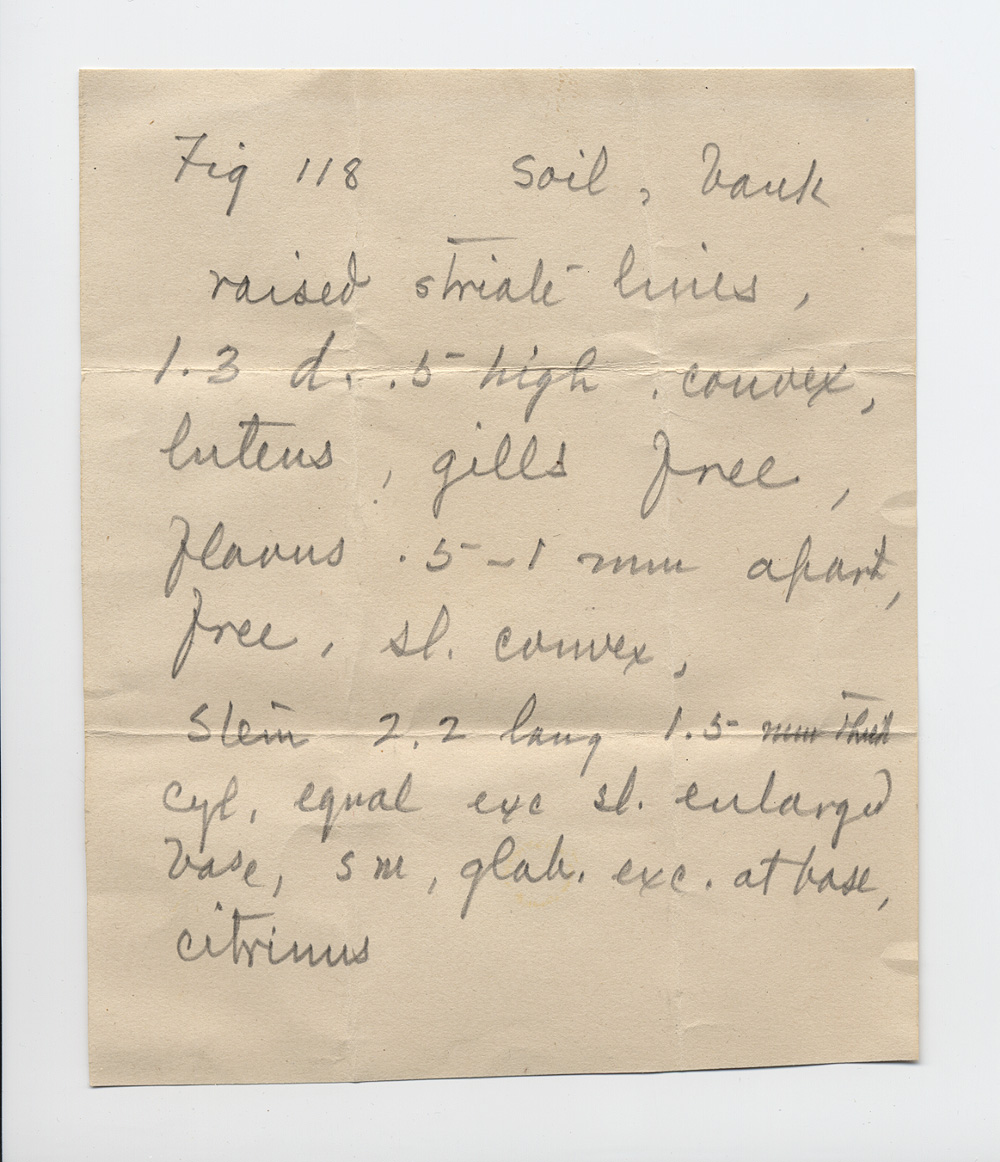 Fig 118 Soil, bank
raised striate lines,
1.3 d. .5 high, convex,
luteus, gills free,
flavus .5-1 mm apart,
free, sl. convex,
Stem 2.2 long 1.5 mm thick
cyl, equal exc sl. enlarged
base, sm, glab. exc. at base,
citrinus